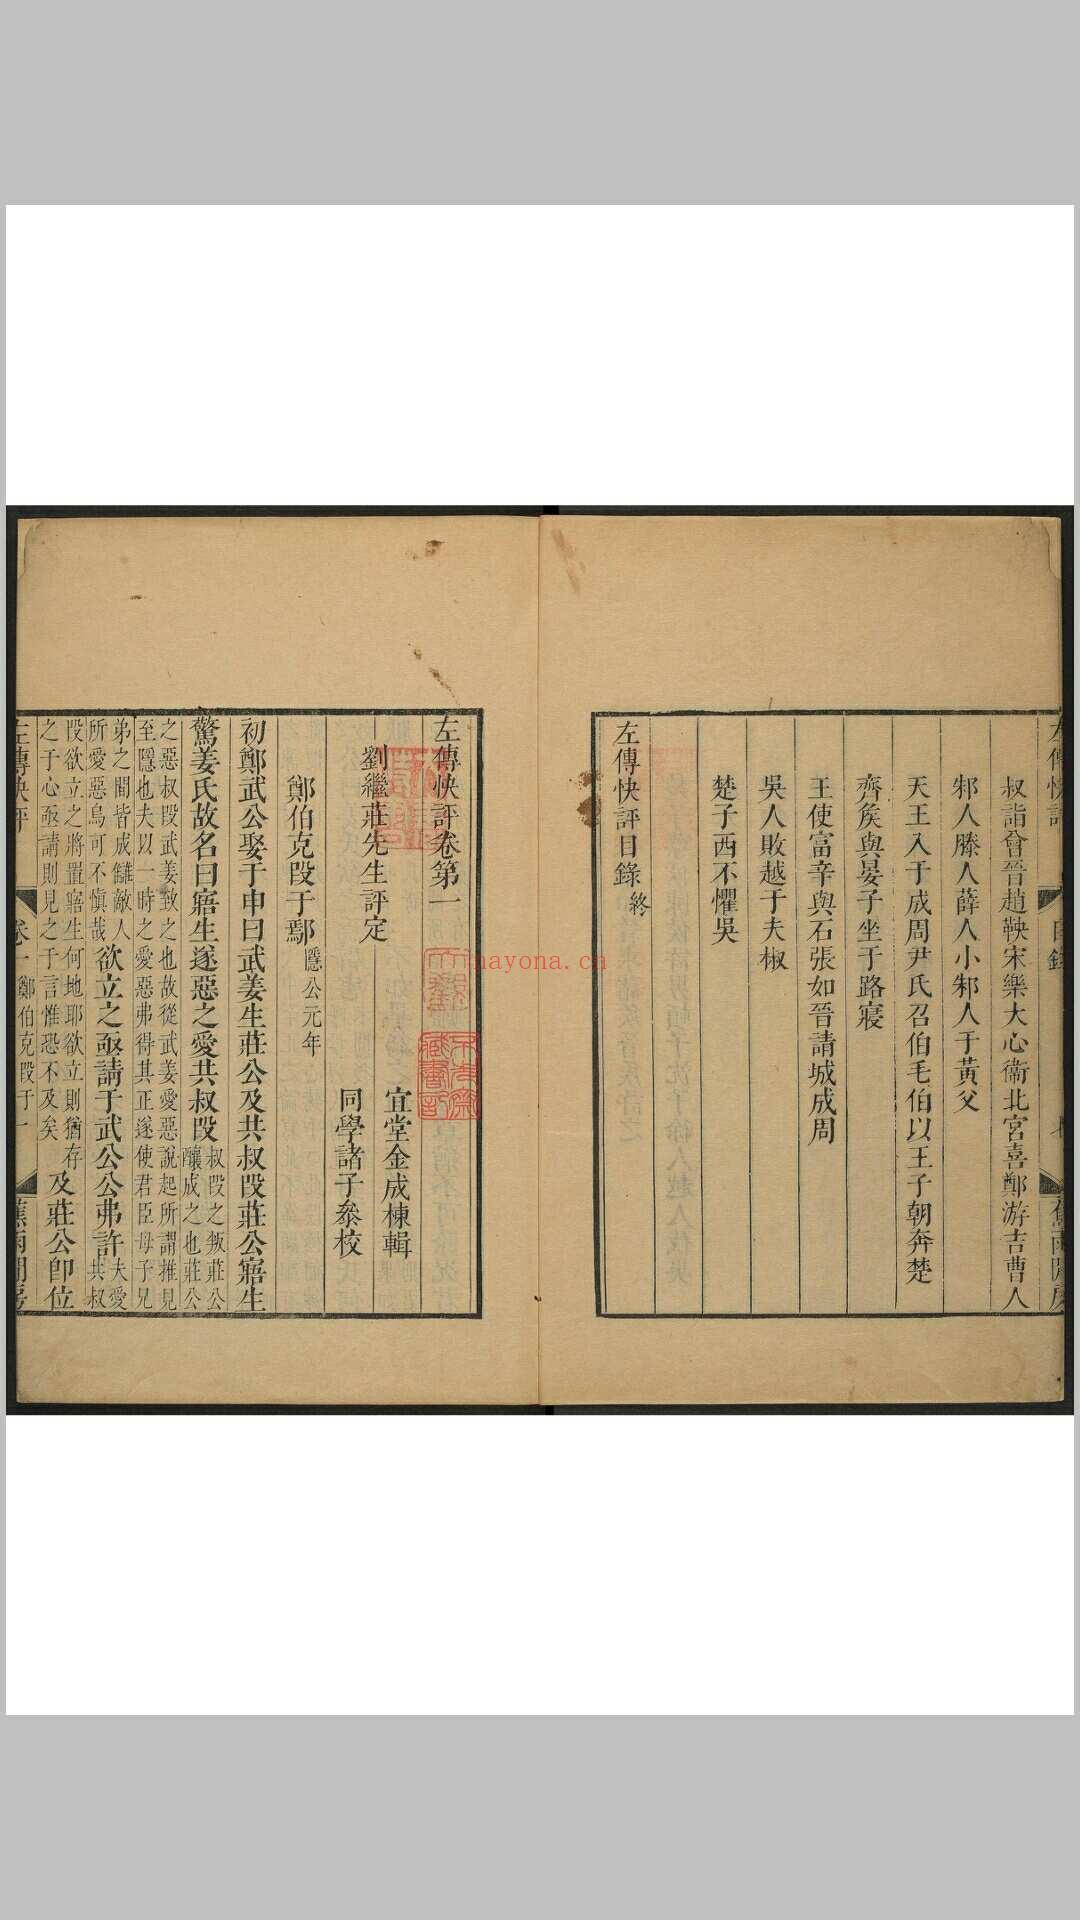 叔詣會晉趙鞅宋樂大心衞北宮喜鄭游吉曹人
邾人滕人薛人小邾人于黃父
天王入于成周尹氏召伯毛伯以王子朝奔楚
齊矦與晏子坐于路寢
王使富辛與石張如晉請城成周
吳人敗越于夫椒
楚子西不懼吳
左傳快評目錄終
左傳快評卷第一
劉繼莊先生評定
宜堂金成棟輯
同學諸子叅校
鄭伯克段于鄢隱公元年
初鄭武公娶于申曰武姜生莊公及共叔段莊公寤生
驚姜氏故名曰寤生遂惡之愛共叔段叔段之叛莊公釀成之也莊公
之惡叔段武姜致之也故從武姜愛惡說起所謂推見
至隱也夫以一時之愛惡弗得其正遂使君臣母子兄
弟之間皆成讎敵人
所愛惡烏可不慎哉欲立之亟請于武公公弗許夫愛共叔
段欲立之將置寤生何地耶欲立則猶存
之于心亟請則見之于言惟恐不及矣及莊公卽位
左傳快評
卷一
鄭伯克段于
一
蕉雨閒房
nayona.cn